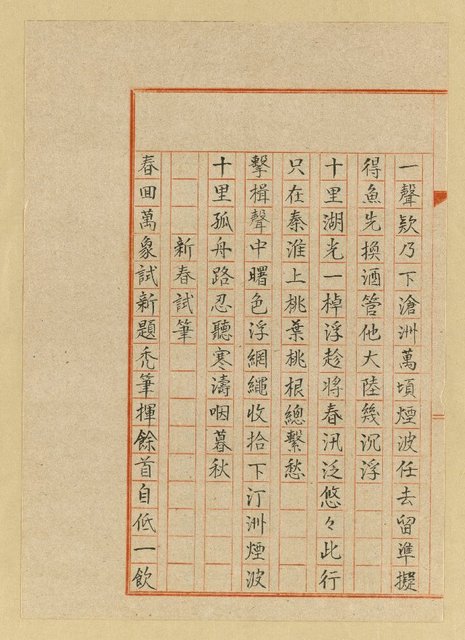 一聲欵乃下滄洲萬頃煙波任去留準擬
得魚先換酒管他大陸幾沉浮
十里湖光一棹浮趁將春汛泛悠々此行
只在秦淮上桃葉桃根總繫愁
擊楫聲中曙色浮網繩收拾下汀洲煙波
十里孤舟路忍聽寒濤咽暮秋
新春試筆
春回萬象試新題禿筆揮餘首自低一飲